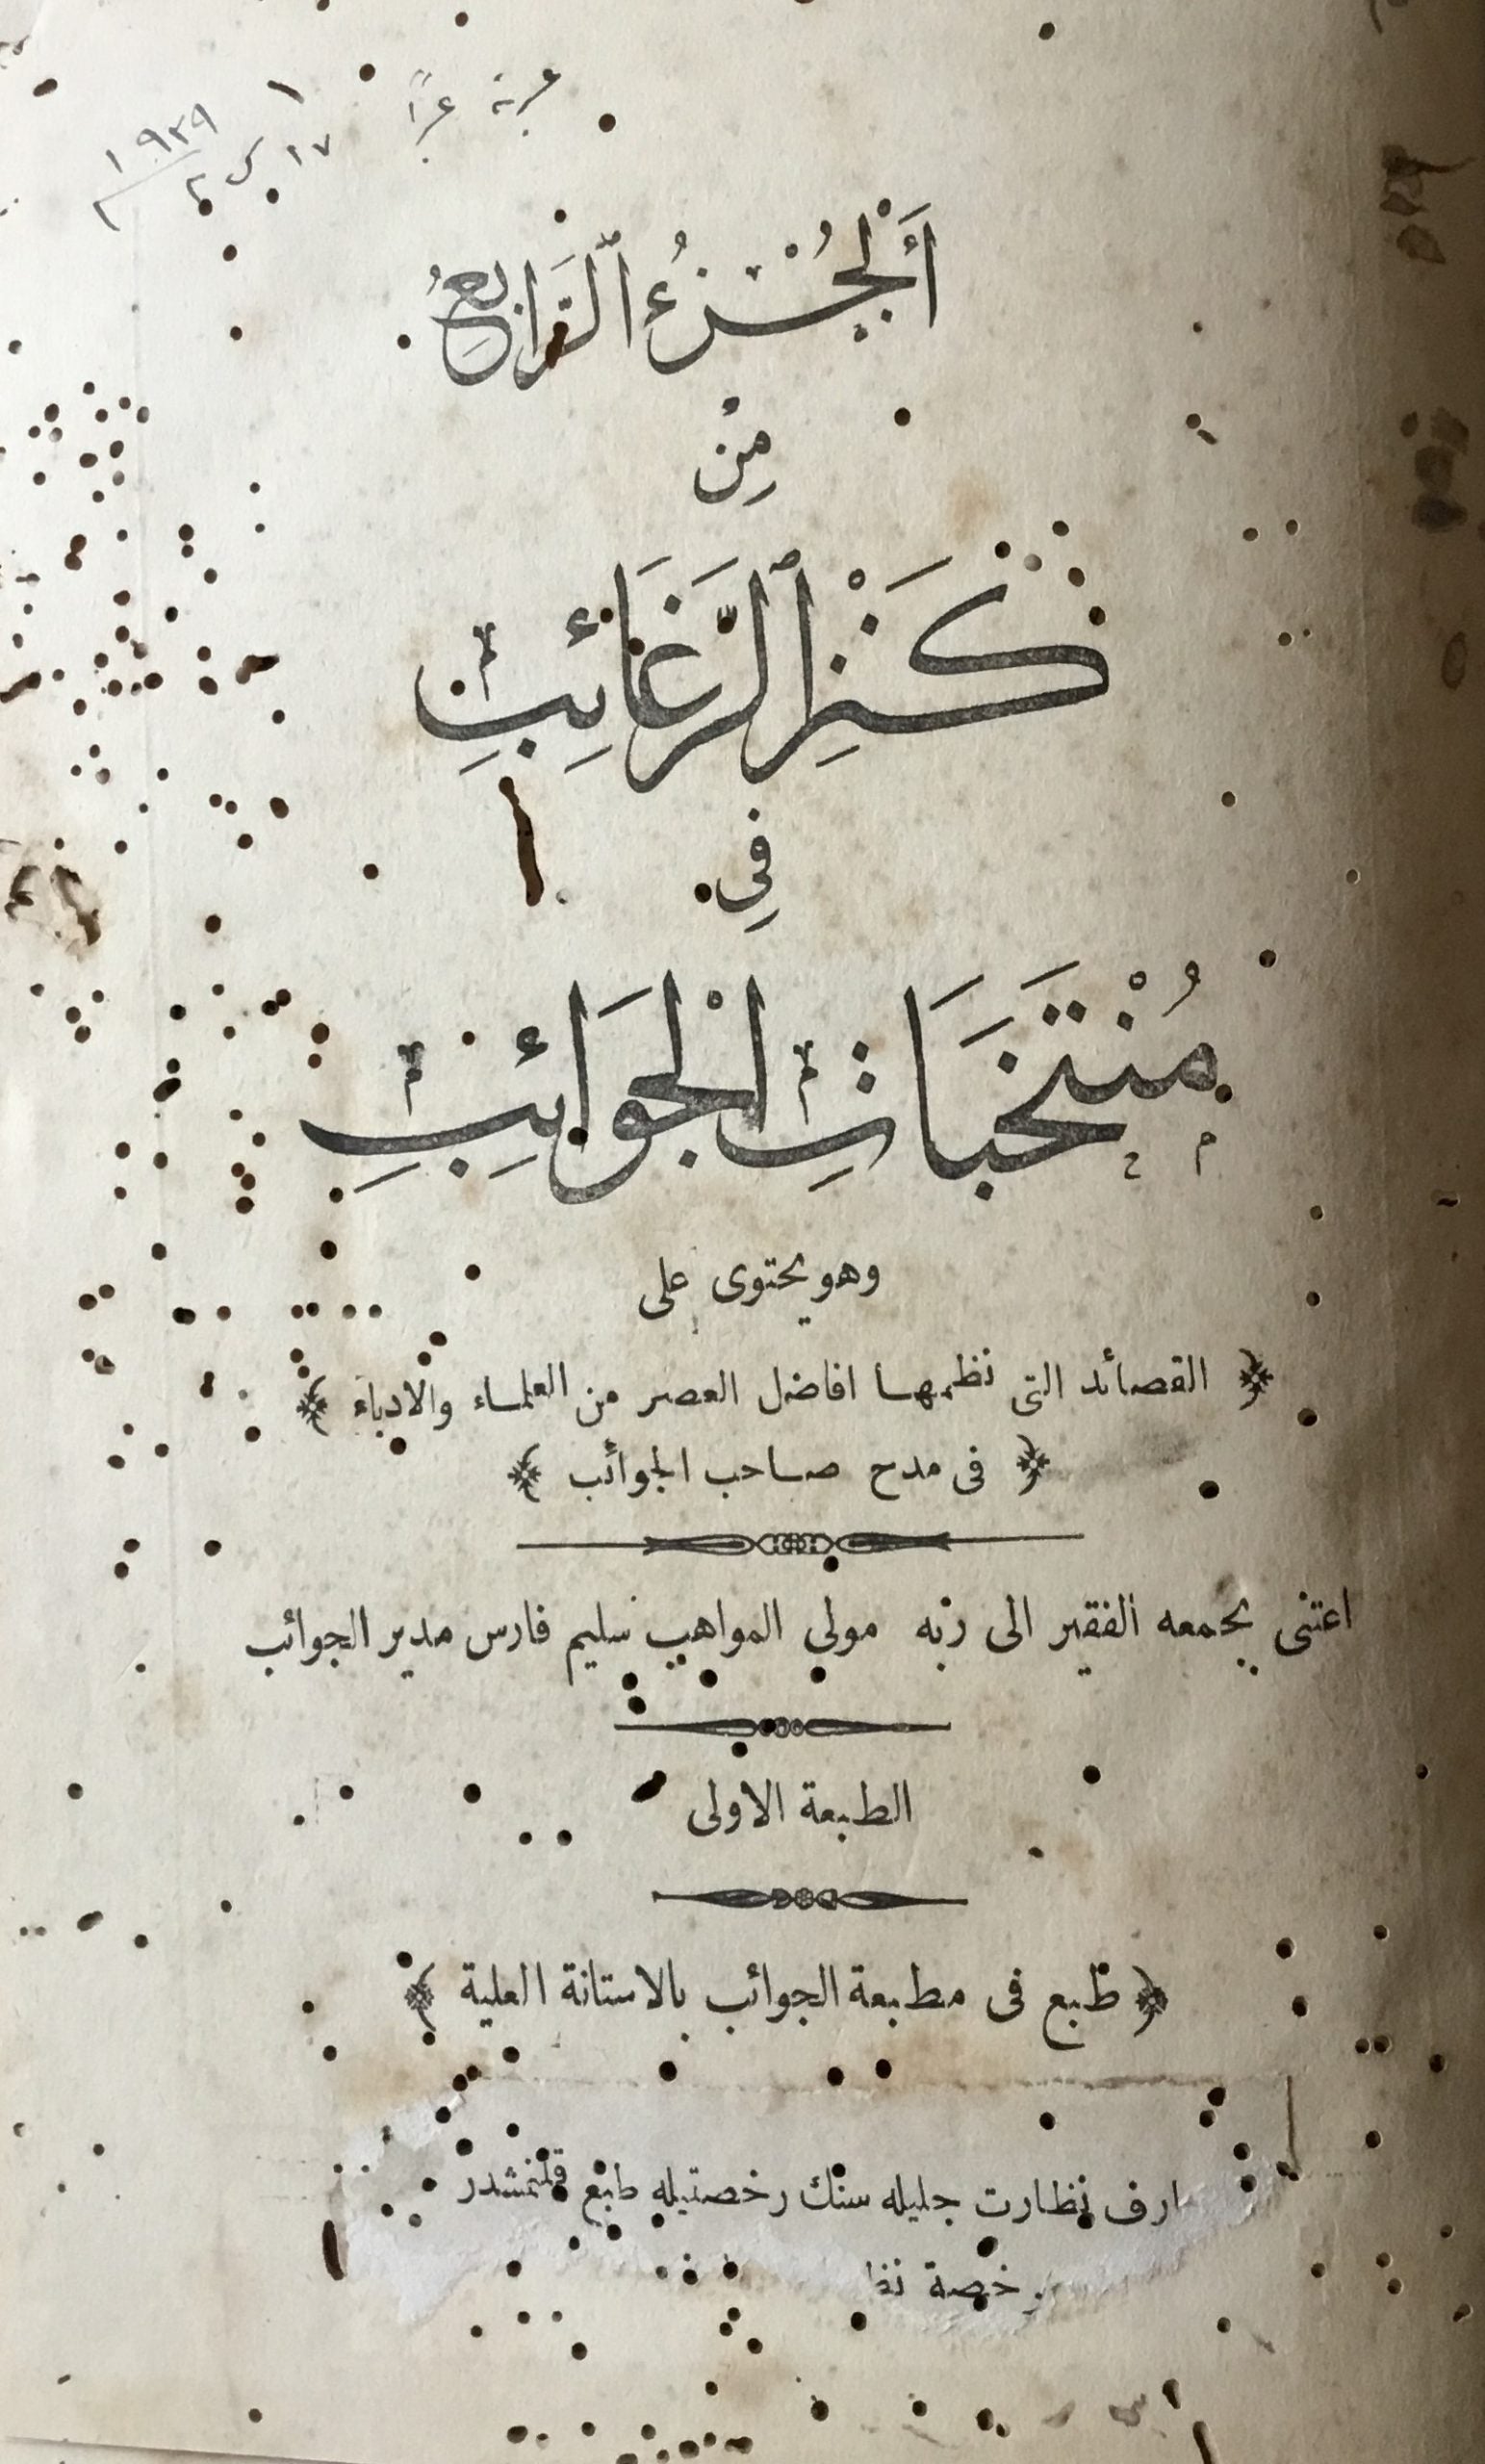 ١٧ ك ٢ ١٩٢٩
أَلْجُزْءُ ٱلرَّابِعُ
مِنْ
كَنْزِ ٱلرَّغَائِبِ
فِي
مُنْتَخَبَاتِ الْجَوَائِبِ
وهو يحتوى على
﴿ القصائد التى نظمها افاضل العصر من العلماء والادباء ﴾
﴿ فى مدح صاحب الجوائب ﴾
اعتنى بجمعه الفقير الى ربه مولى المواهب سليم فارس مدير الجوائب
الطبعة الاولى
﴿ طبع فى مطبعة الجوائب بالاستانة العلية ﴾
ارف نظارت جليله سنك رخصتيله طبع قلنمشدر
رخصة نظا